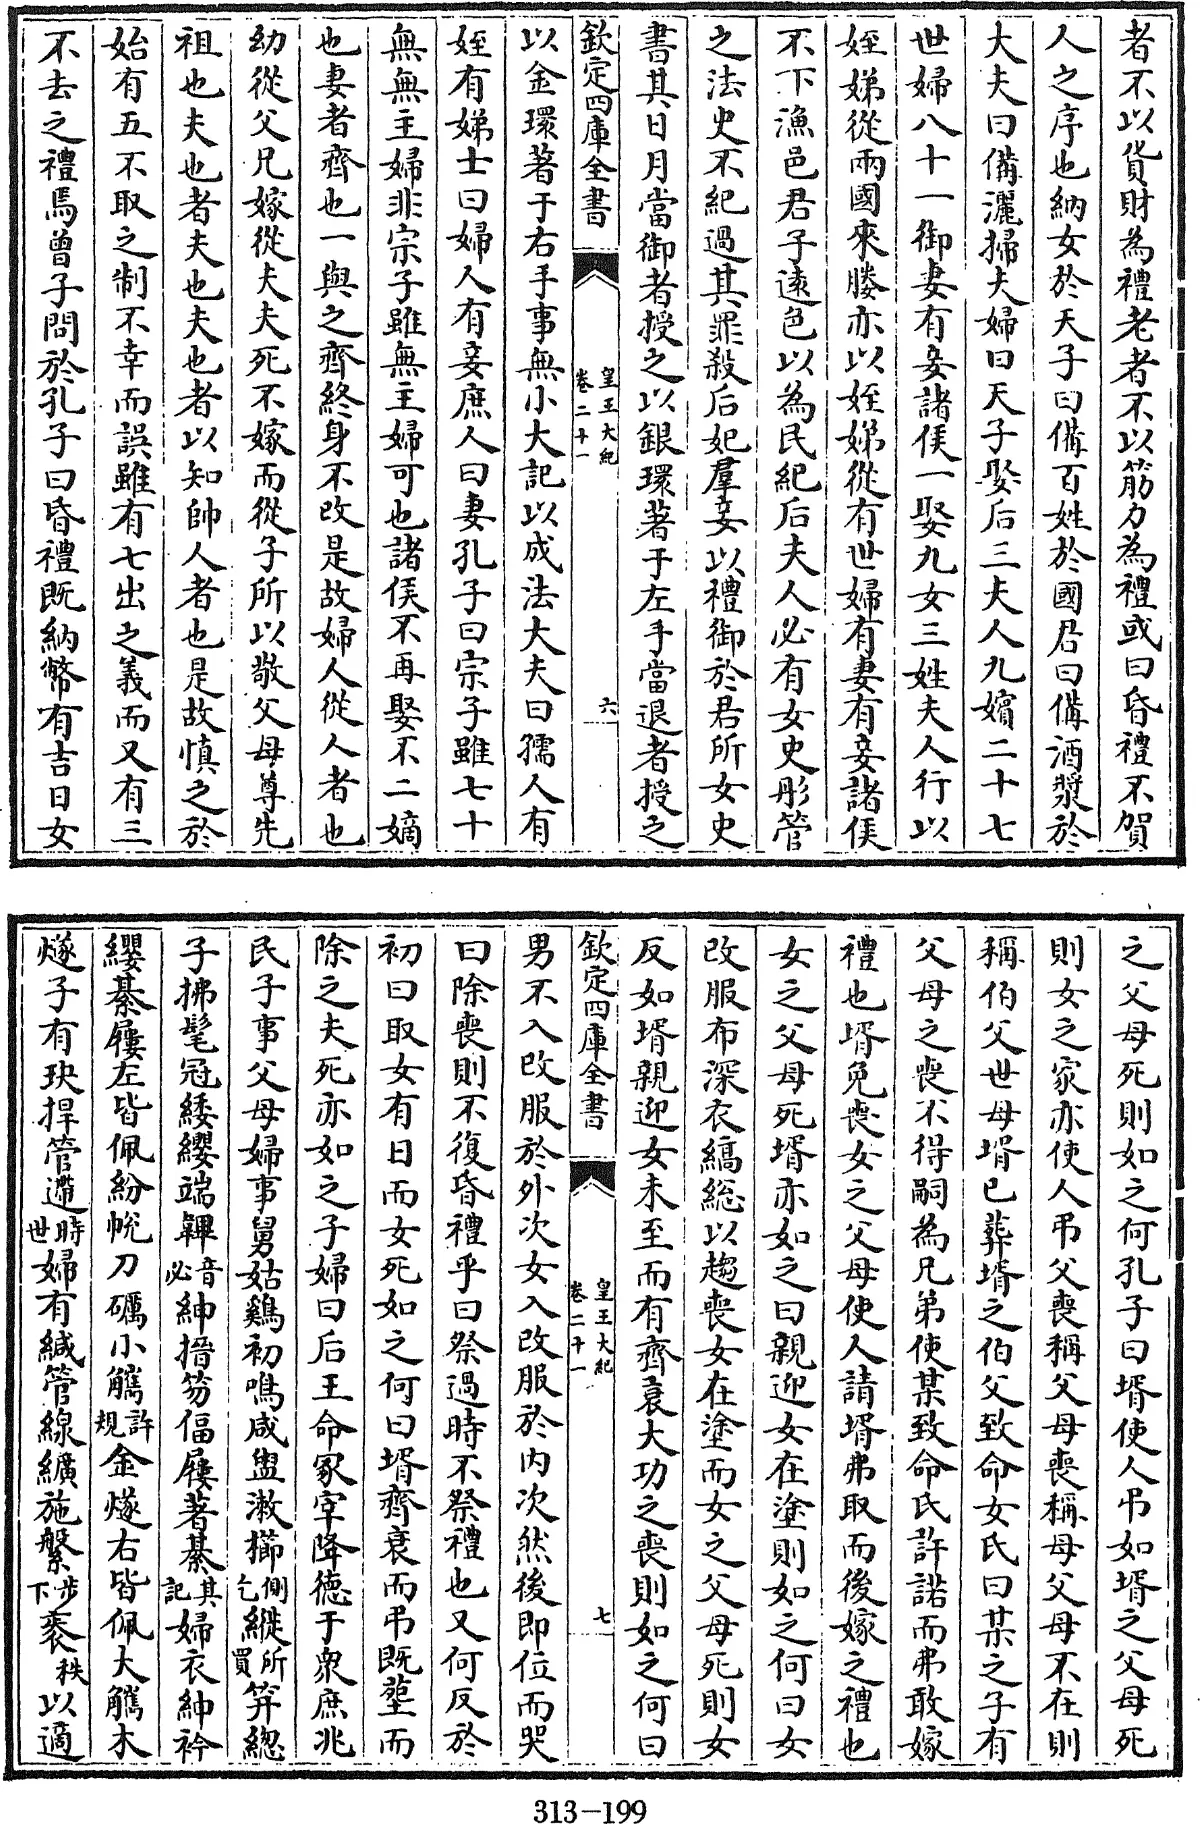 者不以貨財為禮老者不以筋力為禮或曰昏禮不賀
人之序也納女於天子曰備百姓於國君曰備酒漿於
大夫曰備灑掃夫婦曰天子娶后三夫人九嬪二十七
世婦八十一御妻有妾諸侯一娶九女三姓夫人行以
姪娣從兩國來媵亦以姪娣從有世婦有妻有妾諸侯
不下漁邑君子逺色以為民紀后夫人必有女史彤管
之法史不紀過其罪殺后妃羣妾以禮御於君所女史
書其日月當御者授之以銀環著于左手當退者授之
欽定四庫全書
皇王大紀
卷二十一
六
以金環著于右手事無小大記以成法大夫曰孺人有
姪有娣士曰婦人有妾庶人曰妻孔子曰宗子雖七十
無無主婦非宗子雖無主婦可也諸侯不再娶不二嫡
也妻者齊也一與之齊終身不改是故婦人從人者也
幼從父兄嫁從夫夫死不嫁而從子所以敬父母尊先
祖也夫也者夫也夫也者以知帥人者也是故慎之於
始有五不取之制不幸而誤雖有七出之義而又有三
不去之禮焉曾子問於孔子曰昏禮既納幣有吉日女
之父母死則如之何孔子曰壻使人弔如壻之父母死
則女之家亦使人弔父喪稱父母喪稱母父母不在則
稱伯父世母壻已葬壻之伯父致命女氏曰某之子有
父母之喪不得嗣為兄弟使某致命氏許諾而弗敢嫁
禮也壻免喪女之父母使人請壻弗取而後嫁之禮也
女之父母死壻亦如之曰親迎女在塗則如之何曰女
改服布深衣縞總以趨喪女在塗而女之父母死則女
反如壻親迎女未至而有齊衰大功之喪則如之何曰
欽定四庫全書
皇王大紀
卷二十一
七
男不入改服於外次女入改服於内次然後即位而哭
曰除喪則不復昏禮乎曰祭過時不祭禮也又何反於
初曰取女有日而女死如之何曰壻齊衰而弔既塟而
除之夫死亦如之子婦曰后王命冢宰降德于衆庶兆
民子事父母婦事舅姑鷄初鳴咸盥漱櫛側乞縰所買笄緫
子拂髦冠緌纓端韠音必紳搢笏偪屨著綦其記婦衣紳衿
纓綦屨左皆佩紛帨刀礪小觿許規金燧右皆佩大觿木
燧子有玦捍管遰時世婦有緘管線纊施縏步下袠秩以適
313-199